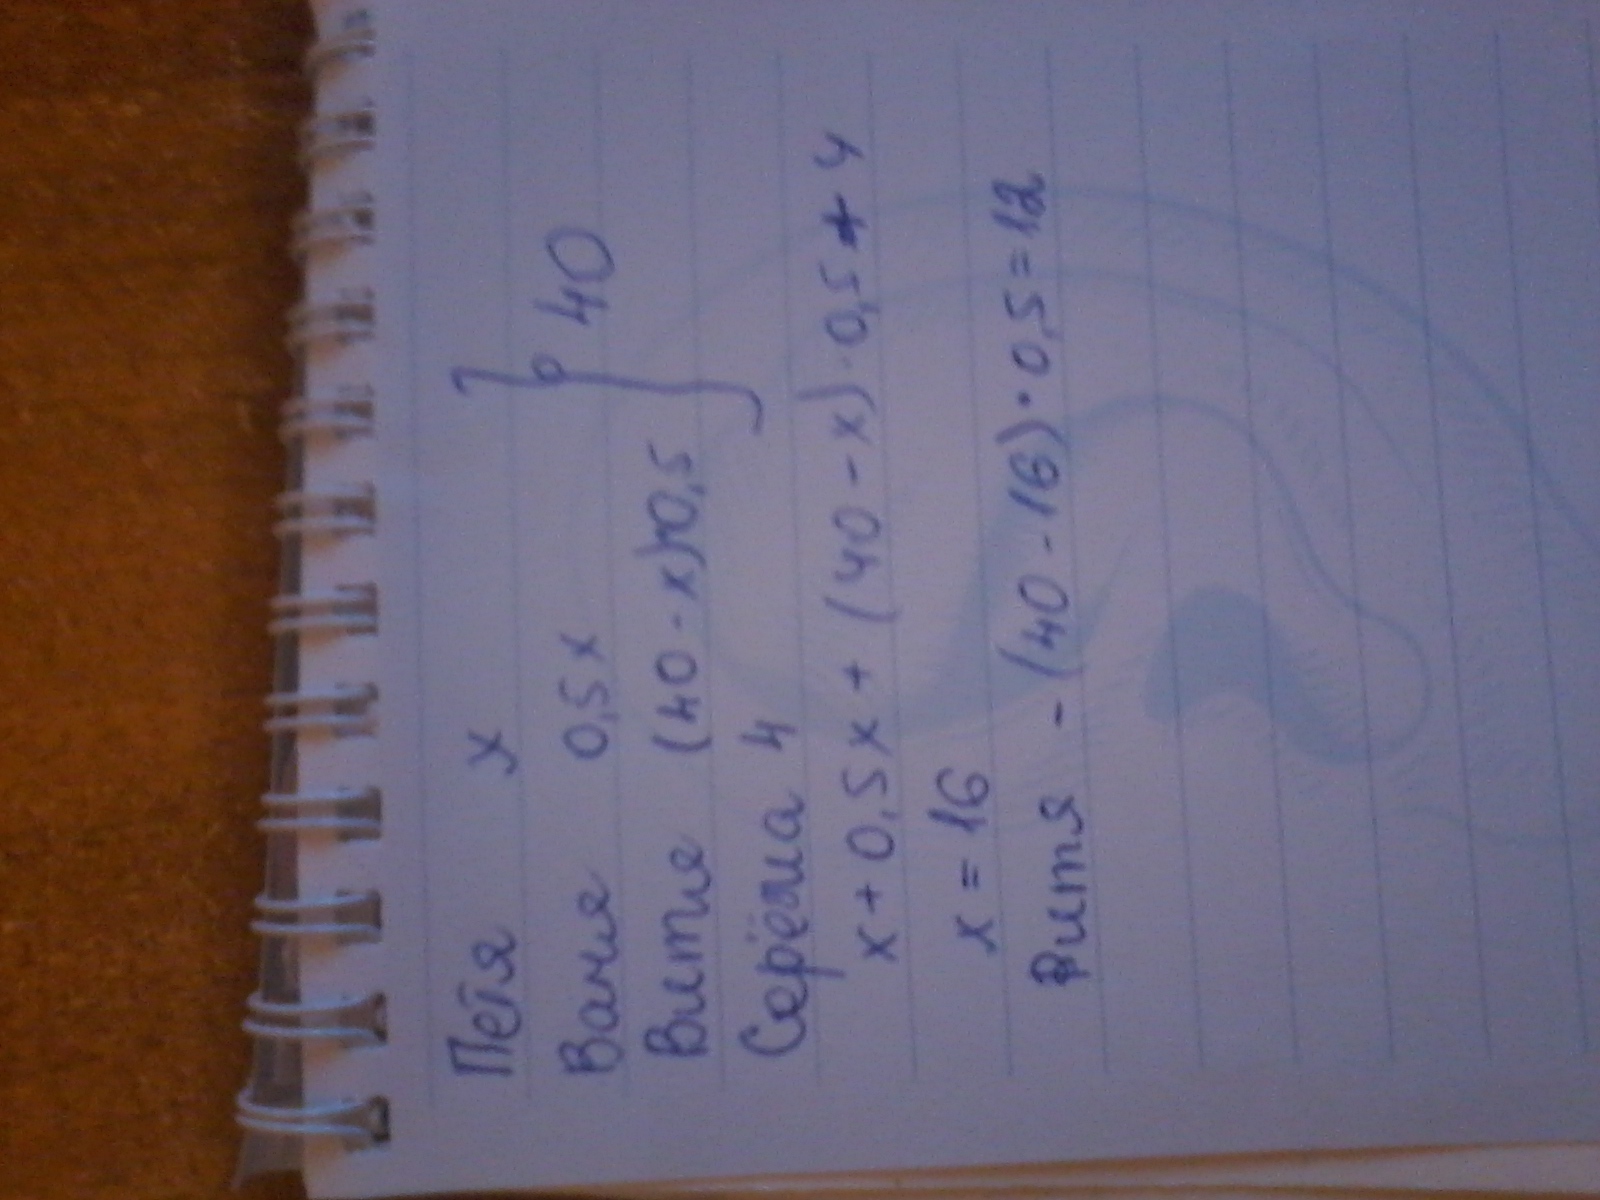 Петя x
Ваня 0,5x
Витя (40-x)·0,5
Серёжа 4
} 40
x+0,5x+(40-x)·0,5+4
x=16
Витя -(40-16)·0,5=12